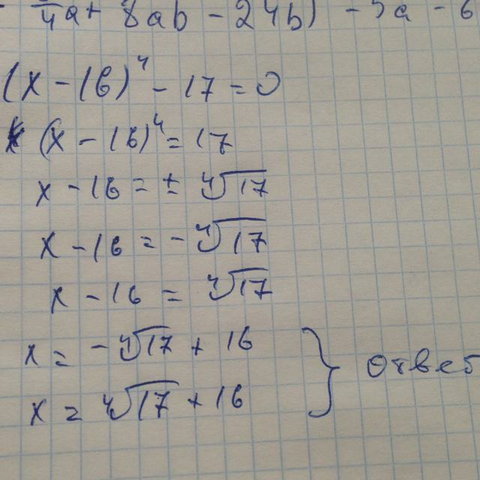 4a + 8ab - 24b) - 3a - 6
(x - 16)⁴ - 17 = 0
(x - 16)⁴ = 17
x - 16 = ± ⁴√17
x - 16 = - ⁴√17
x - 16 = ⁴√17
x = - ⁴√17 + 16
x = ⁴√17 + 16
ответ